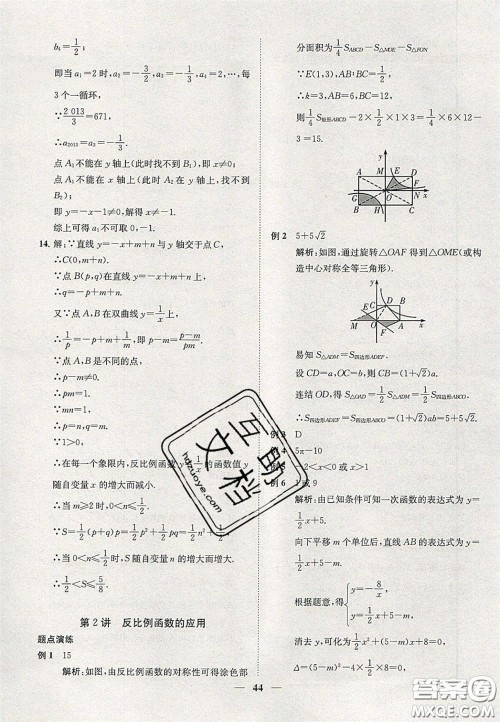 b₁=1/2;
即当 a₁=2 时,a₂=-3/2,a₃=-1/3,a₄=2,…,每
3 个一循环,
∵2 013/3=671,
∴a₂₀₁₃=a₃=-1/3.
点 A₁ 不能在 y 轴上(此时找不到 B₁),即 x≠0;
点 A₁ 不能在 x 轴上(此时,在 y 轴上,找不到
B₂);
即 y=-x-1≠0,解得:x≠-1.
综上可得 a₁ 不可取 0,-1.
14. 解:∵直线 y=-x+m+n 与 y 轴交于点 C,
∴C(0,m+n).
∵点 B(p,q)在直线 y=-x+m+n 上,
∴q=-p+m+n.
又∵点 A、B 在双曲线 y=1/x 上,
∴1/p=-p+m+1/m,即 p-m=(p-m)/pm.
∵点 A、B 是不同的点,
∴p-m≠0.
∴pm=1.
∵mn=1,
∴p=n,q=m.
∵1>0,
∴在每一个象限内,反比例函数 y=1/x 的函数值 y
随自变量 x 的增大而减小.
∴当 m≥2 时,0<n≤1/2.
∵S=1/2(p+q)p=1/2p²+1/2pq=1/2n²+1/2,
又∵1/2>0,
∴当 0<n≤1/2 时,S 随自变量 n 的增大而增大.
∴1/2<S≤5/8.
第 2 讲 反比例函数的应用
题点演练
例 1 15
解析:如图,由反比例函数的对称性可得涂色部
分面积为1/4S矩形ABCD-S△MOE-S△FON
∵E(1,3),AB:BC=1/2,
∴k=3,AB=6,BC=12.
则1/4S矩形ABCD-2×1/2×1×3=1/4×6×12-
3=15.
y
A M E D
G O F N x
B H C
例 2 5+5√2
解析:如图,通过旋转△OAF 得到△OME(或构
造中心对称全等三角形).
y
C D B
E
M O F A x
易知 S△ADM=S四边形ADEF.
设 CD=a,OC=b,则 DB=(1+√2)a.
连结 OD,得 S△OAD=1/2S四边形ADEF.
∴S四边形ADEF=S△ADM=(1+√2)ab=5+5√2.
例 3 D
例 4 5π-10
例 5 -2<x<0 或 x>1
例 6 1或 9
解析:由已知条件可知一次函数的表达式为 y=
1/2x+5.
向下平移 m 个单位后,直线 AB 的表达式为 y=
1/2x+5-m.
根据题意,得{y=-8/x,
y=1/2x+5-m.
消去 y,可化为1/2x²+(5-m)x+8=0.
Δ=(5-m)²-4×1/2×8=0.
44
互助文档
hdzuoye.com
答案圈
MXQE.COM